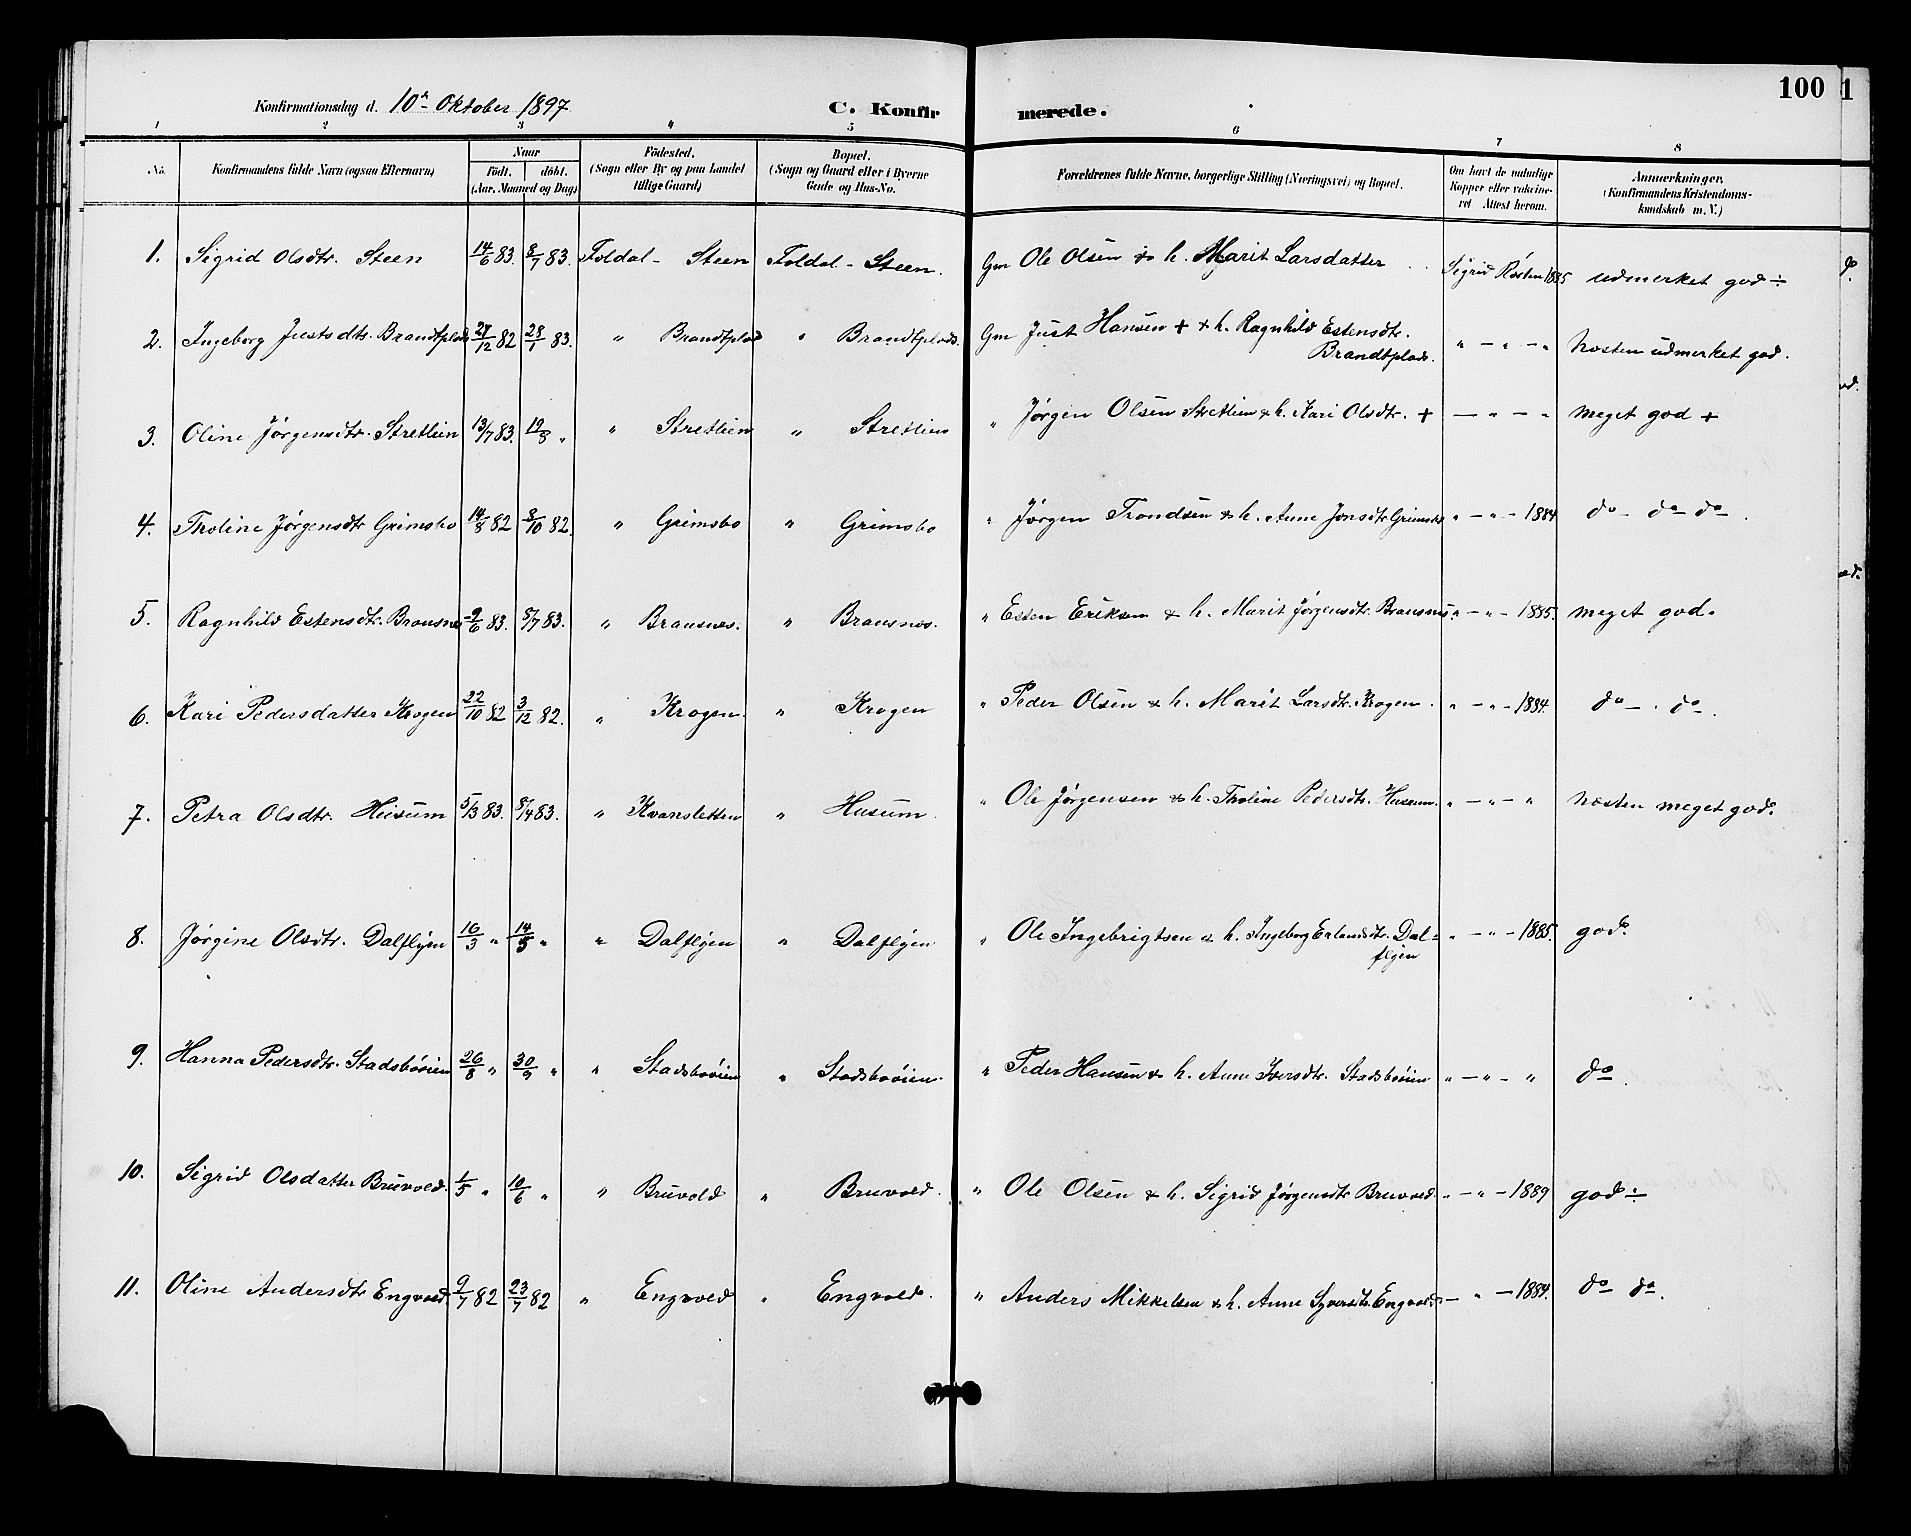 100
1
Konfirmationsdag d. 10de Oktober 1897
C. Konfirmerede.
1 2 3 4 5 6 7 8
No. Konfirmandens fulde Navn (ogsaa Efternavn) Naar født. døbt. (Aar, Maaned og Dag) Fødested. (Sogn eller By og paa Landet tillige Gaard) Bopæl. (Sogn og Gaard eller i Byerne Gade og Hus-No. Forældrenes fulde Navne, borgerlige Stilling (Næringsvei) og Bopæl. Om havt de naturlige Kopper eller vaccineret Attest herom. Anmærkninger. (Konfirmandens Kristendomskundskab m. V.)
1. Sigrid Olsdtr. Steen 14/6 83. 8/7 83. Foldal - Steen Foldal - Steen. Gm Ole Olsen & h. Marit Larsdatter Sigrid Røsten 1885 udmerket god ÷
2. Ingeborg Justsdtr. Brandtplads 12 82 28/1 83. " Brandtplad " Brandtplads. Gm Just Hansen + & h. Ragnhild Estensdtr. Brandtplads. " - " - " næsten udmerket god.
3. Oline Jørgensdtr. Stretlien 13/7 83. 19/8 " " Stretlien " Stretlien " Jørgen Olsen Stretlien & h. Kari Olsdtr. + - " - " meget god +
4. Tholine Jørgensdtr Grimsbo 14/8 82 8/10 82. " Grimsbo " Grimsbo " Jørgen Trondsen & h. Anne Jonsdtr Grimsbo " - " - 1884 do - do do.
5. Ragnhild Estensdtr. Brausnes 9/6 83. 8/7 83. " Brausnes. " Brausnes. " Esten Eriksen & h. Marit Jørgensdtr. Brausnes. " - " - 1885. meget god.
6. Kari Pedersdatter Krogen 22/10 82 3/12 82. " Krogen. " Krogen " Peder Olsen & h. Marit Larsdtr. Krogen. " - " - 1884. do - do.
7. Petra Olsdtr. Husum 5/3 83. 8/4 83. " Kvansletten " Husum. " Ole Jørgensen & h. Tholine Pedersdtr. Husum. " - " - " næsten meget god.
8. Jørgine Olsdtr. Dalflyen 16/3 " 14/5 " " Dalflyen " Dalflyen " Ole Ingebrigtsen & h. Ingeborg Erlandsdtr. Dalflyen " - " - 1885. god.
9. Hanna Pedersdtr. Stadsbøien 26/8 " 30/9 " " Stadsbøien " Stadsbøien. " Peder Hansen & h. Anne Iversdtr. Stadsbøien " - " - " do.
10. Sigrid Olsdatter Bruvold. 1/5 " 10/6 " " Bruvold " Bruvold. " Ole Olsen & h. Sigrid Jørgensdtr Bruvold. " - " - 1889 god ÷
11. Oline Andersdtr Engvold. 9/7 82 23/7 82 " Engvold " Engvold. " Anders Mikkelsen & h. Anne Syversdtr. Engvold " - " - 1884. do do.